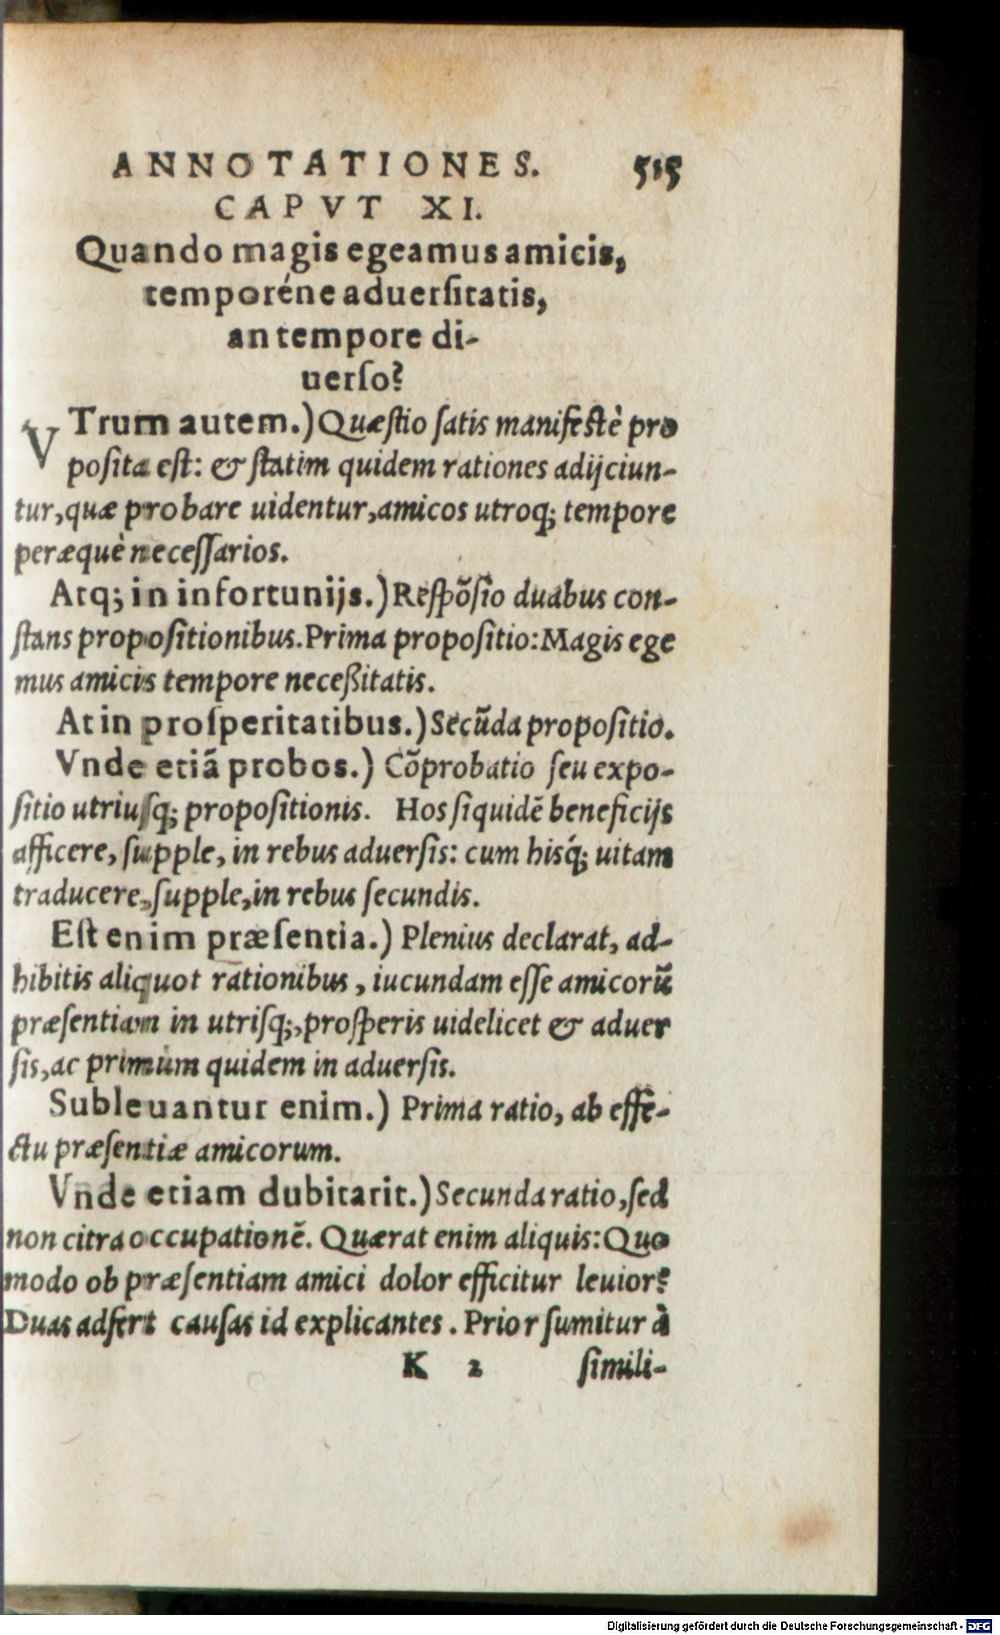 ANNOTATIONES. 515
CAPVT XI.
Quando magis egeamus amicis,
temporéne aduersitatis,
an tempore di-
uerso?
VTrum autem.) Quæstio satis manifestè pro
posita est: & statim quidem rationes adijciun-
tur, quæ probare uidentur, amicos utroq; tempore
peræquè necessarios.
Atq; in infortunijs.) Respõsio duabus con-
stans propositionibus. Prima propositio: Magis ege
mus amicis tempore necessitatis.
At in prosperitatibus.) Secũda propositio.
Vnde etiã probos.) Cõprobatio seu expo-
sitio utriusq; propositionis. Hos siquidẽ beneficijs
afficere, supple, in rebus aduersis: cum hisq́; uitam
traducere, supple, in rebus secundis.
Est enim præsentia.) Plenius declarat, ad-
hibitis aliquot rationibus, iucundam esse amicorũ
præsentiam in utrisq;, prosperis uidelicet & aduer
sis, ac primùm quidem in aduersis.
Subleuantur enim.) Prima ratio, ab effe-
ctu præsentiæ amicorum.
Vnde etiam dubitarit.) Secunda ratio, sed
non citra occupationẽ. Quærat enim aliquis: Quo
modo ob præsentiam amici dolor efficitur leuior?
Duas adfert causas id explicantes. Prior sumitur à
K 2 simili-
Digitalisierung gefördert durch die Deutsche Forschungsgemeinschaft - DFG